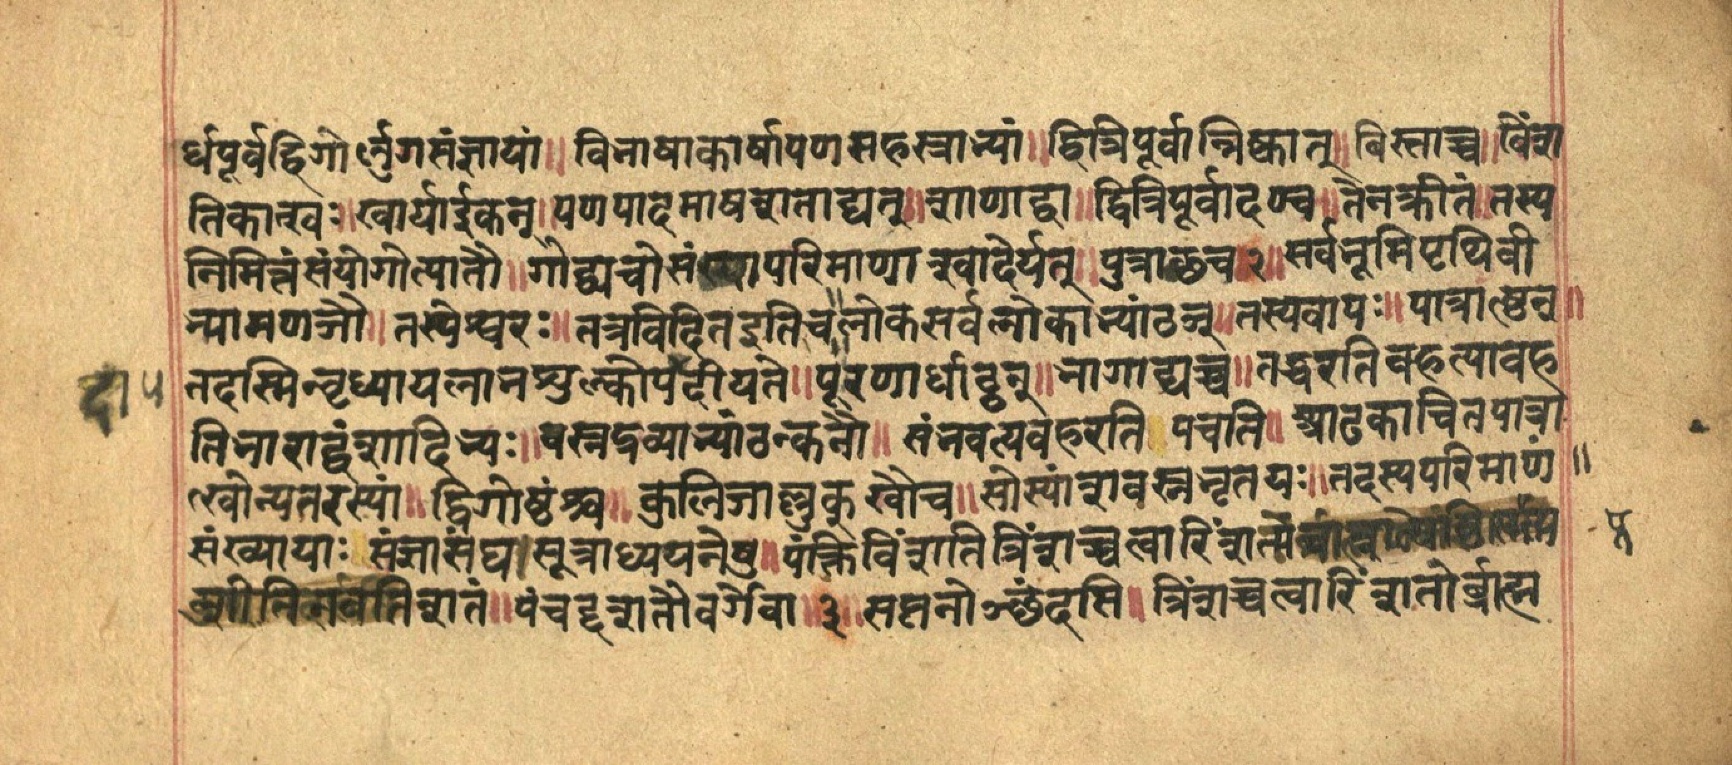 र्धपूर्वद्विगोर्लुगसंज्ञायां॥ विभाषाकार्षापणसहस्राभ्यां॥ द्वित्रिपूर्वान्निष्कात्॥ बिस्ताच्च॥ विंश
तिकात्खः॥ खार्याईकन्॥ पणपादमाषशताद्यत्॥ शाणाद्वा॥ द्वित्रिपूर्वादण्च॥ तेनक्रीतं॥ तस्य
निमित्तंसंयोगोत्पातौ॥ गोद्व्यचोसंख्यापरिमाणाश्वादेर्यत्॥ पुत्राच्छच २॥ सर्वभूमिपृथिवी
भ्यामणञौ॥ तस्येश्वरः॥ तत्रविदितइतिच॥ लोकसर्वलोकाभ्यांठञ्॥ तस्यवापः॥ पात्रात्ष्ठन्॥
तदस्मिन्वृध्यायलाभशुल्कोपदीयते॥ पूरणार्धाठ्ठन्॥ भागाद्यच्च॥ तद्धरतिवहत्यावह
दा ५
तिभाराद्वंशादिभ्यः॥ वस्नद्रव्याभ्यांठन्कनौ॥ संभवत्यवहरति पचति॥ आढकाचितपात्रा
त्खोन्यतरस्यां॥ द्विगोष्ठंश्च॥ कुलिजाल्लुक्खौच॥ सोस्यांशवस्नभृतयः॥ तदस्यपरिमाणं॥
संख्यायाः संज्ञासंघसूत्राध्ययनेषु॥ पंक्तिविंशतित्रिंशच्चत्वारिंशत्पं
५
शीतिनवतिशतं॥ पंचद्दशतौवर्गेवा॥ ३॥ सप्तनोञ्छंदसि॥ त्रिंशच्चत्वारिंशतोर्ब्राह्म